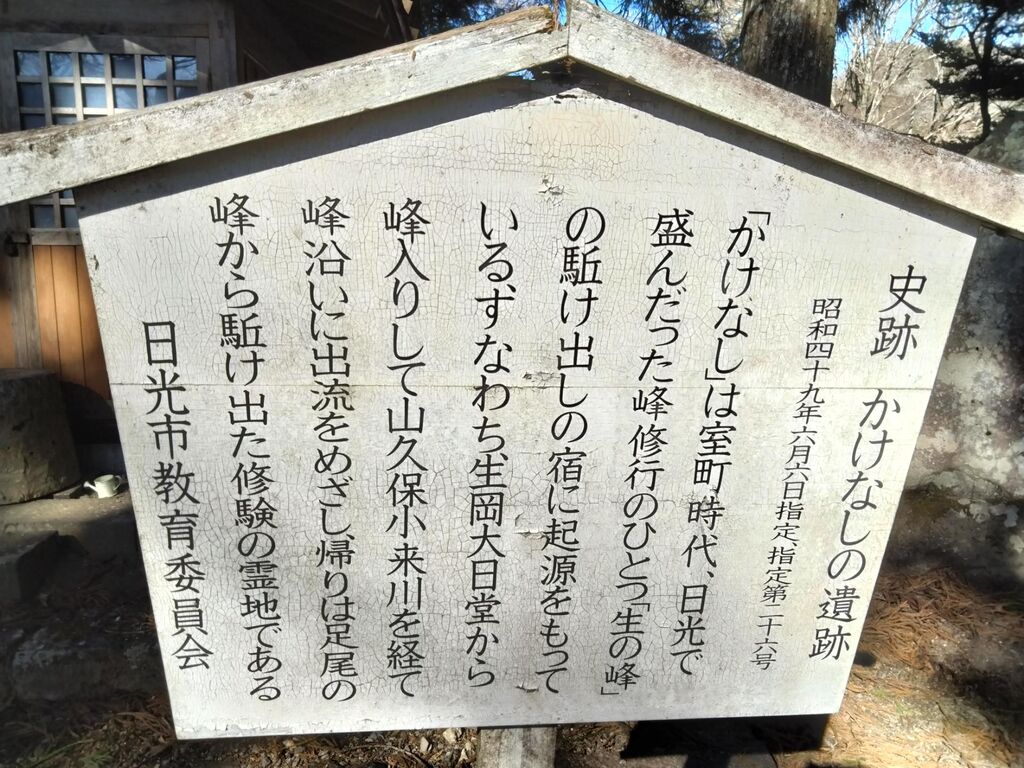 史跡　かけなしの遺跡
昭和四十九年六月六日指定、指定第二十六号
「かけなし」は室町時代、日光で
盛んだった峰修行のひとつ「生の峰」
の駈け出しの宿に起源をもって
いる、すなわち、生岡大日堂から
峰入りして山久保小来川を経て
峰沿いに出流をめざし、帰りは足尾の
峰から駈け出た修験の霊地である
日光市教育委員会